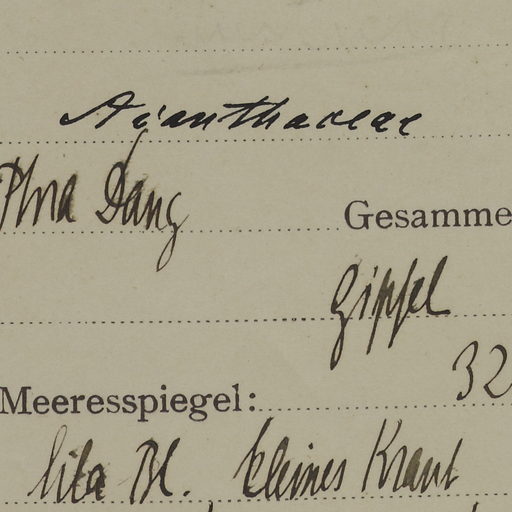 Acanthaceae
Phra Dang Gesamme
Gipfel
32
Meeresspiegel:
lila Bl. kleines Kraut